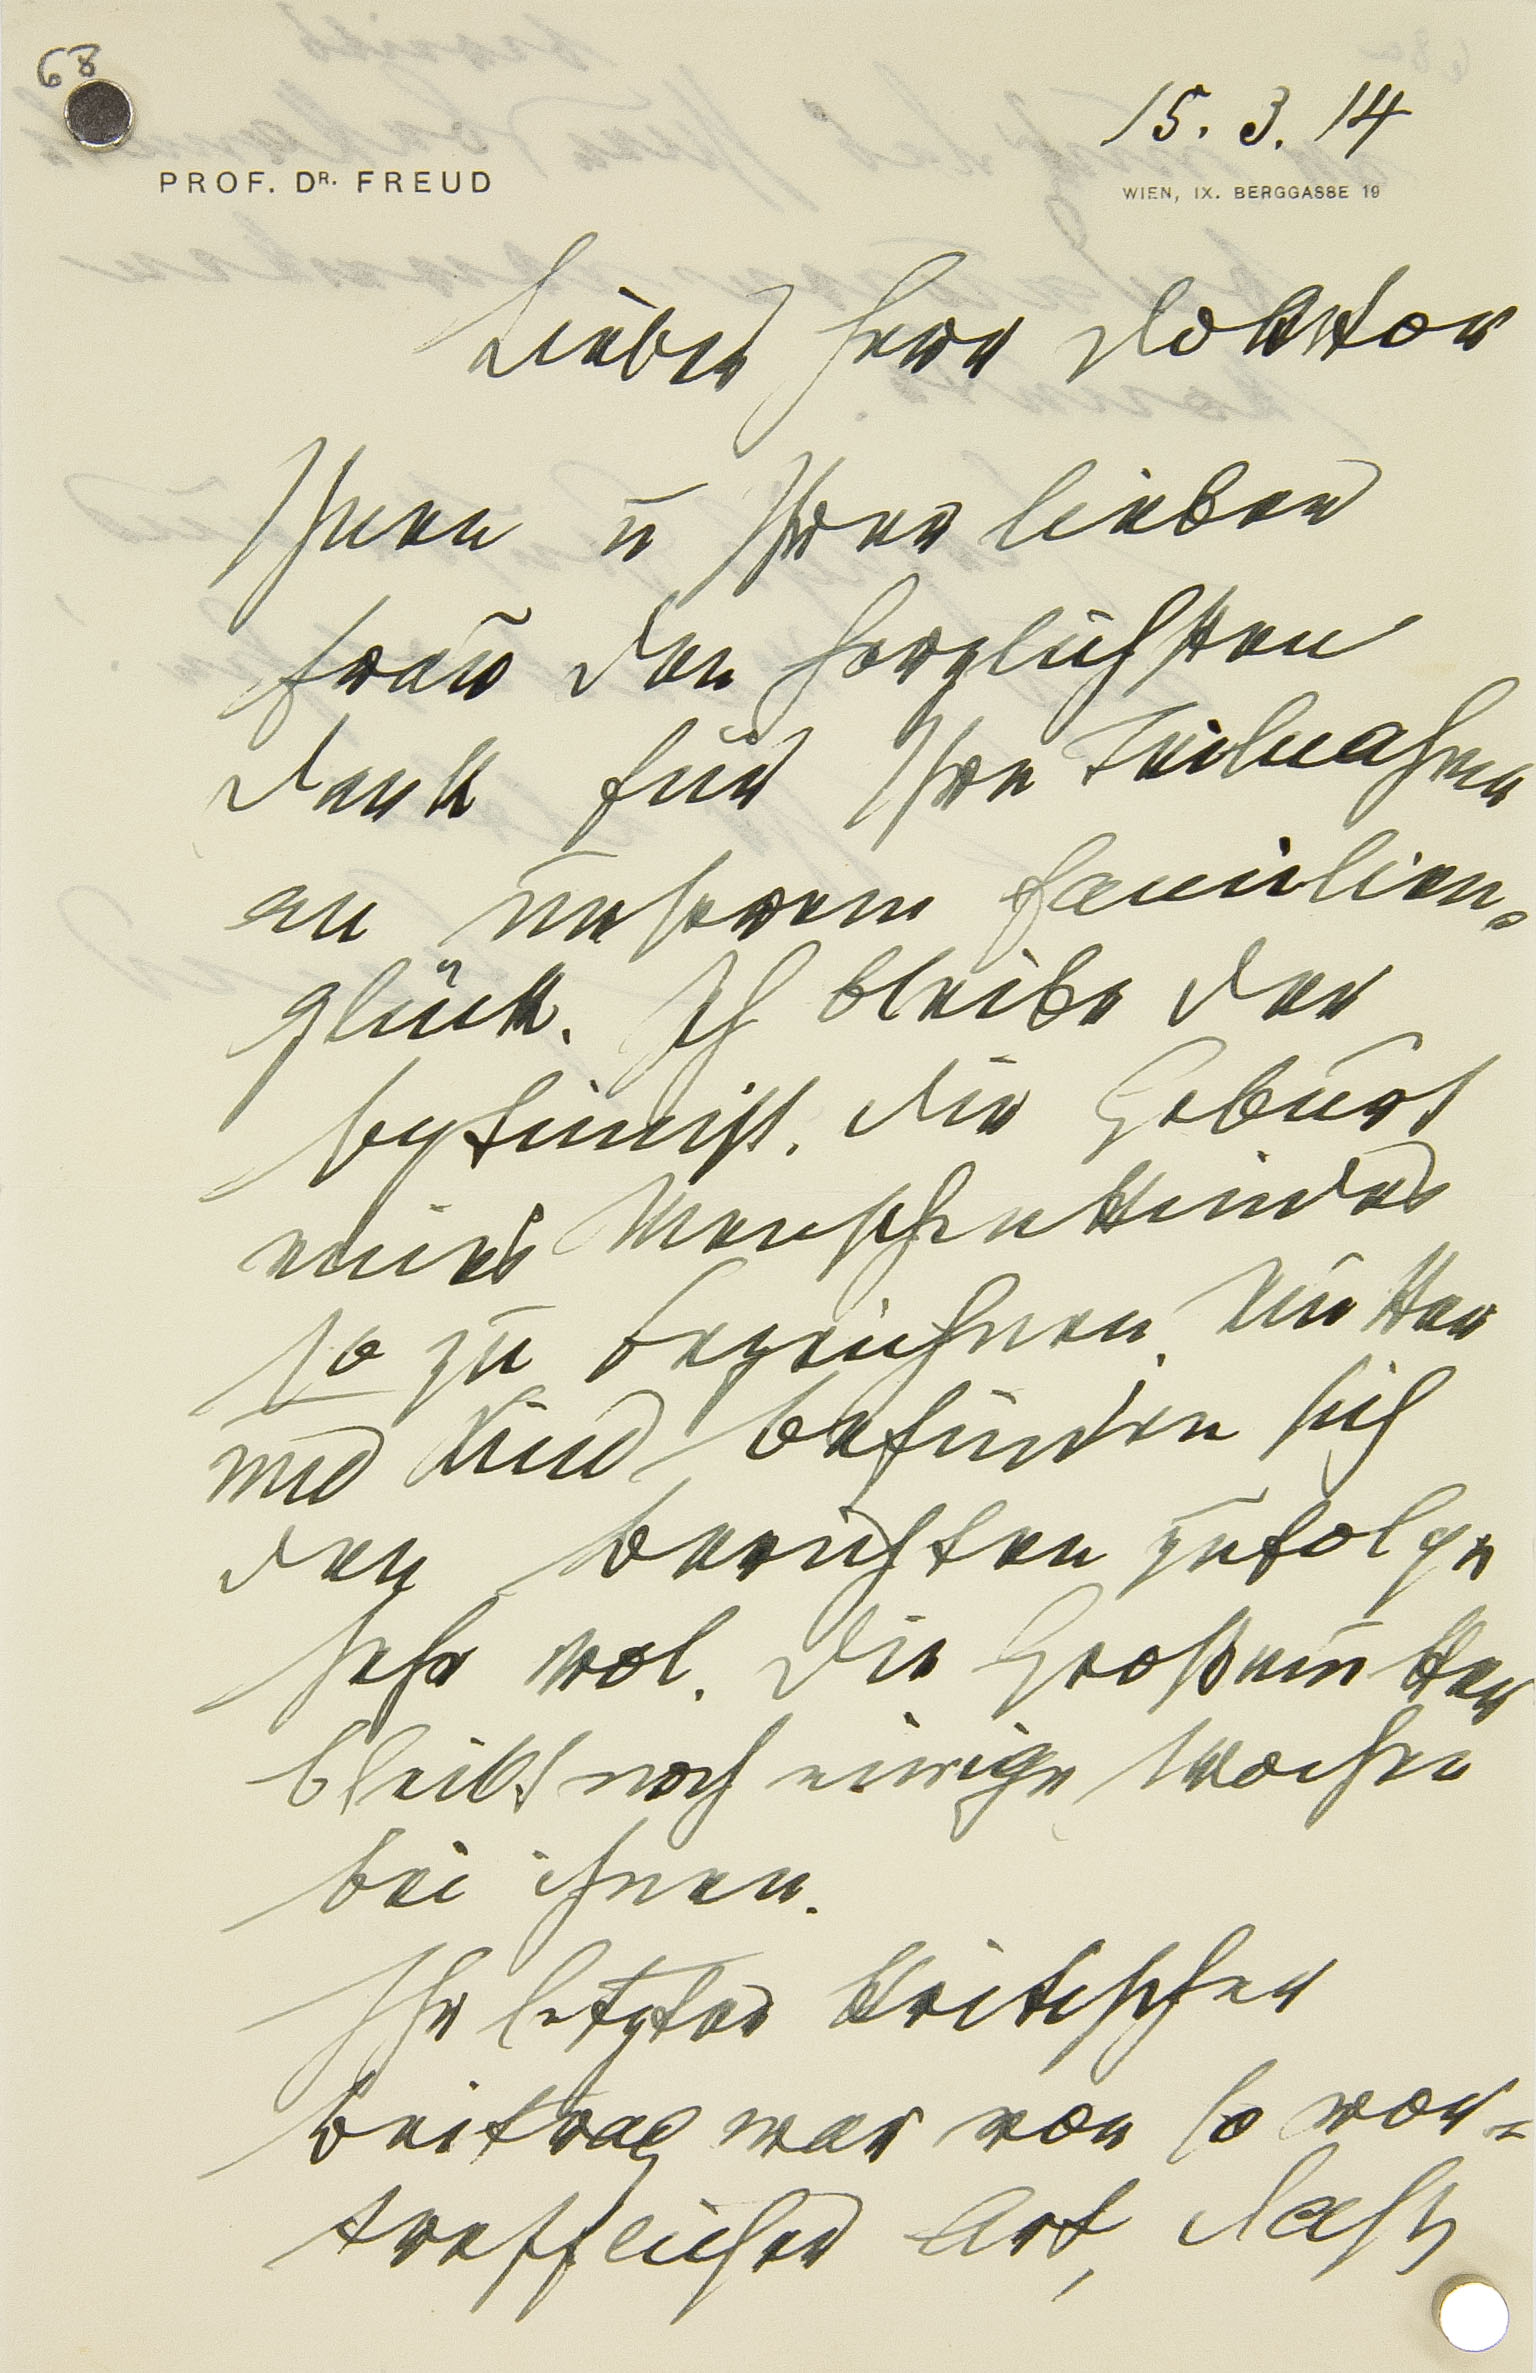 68
15. 3. 14
PROF. DR. FREUD
WIEN, IX. BERGGASSE 19
Lieber Herr Doktor
Ihnen u Ihrer lieben
Frau den herzlichsten
Dank für Ihre Teilnahme
an unserem Familien-
glück. Ich bleibe der
Optimist, die Geburt
eines Menschenkindes
so zu bezeichnen. Mutter
und Kind befinden sich
den Berichten zufolge
sehr wol. Die Großmutter
bleibt noch einige Wochen
bei ihnen.
Ihr letzter kritischer
Beitrag war von so vor-
trefflicher Art, daß